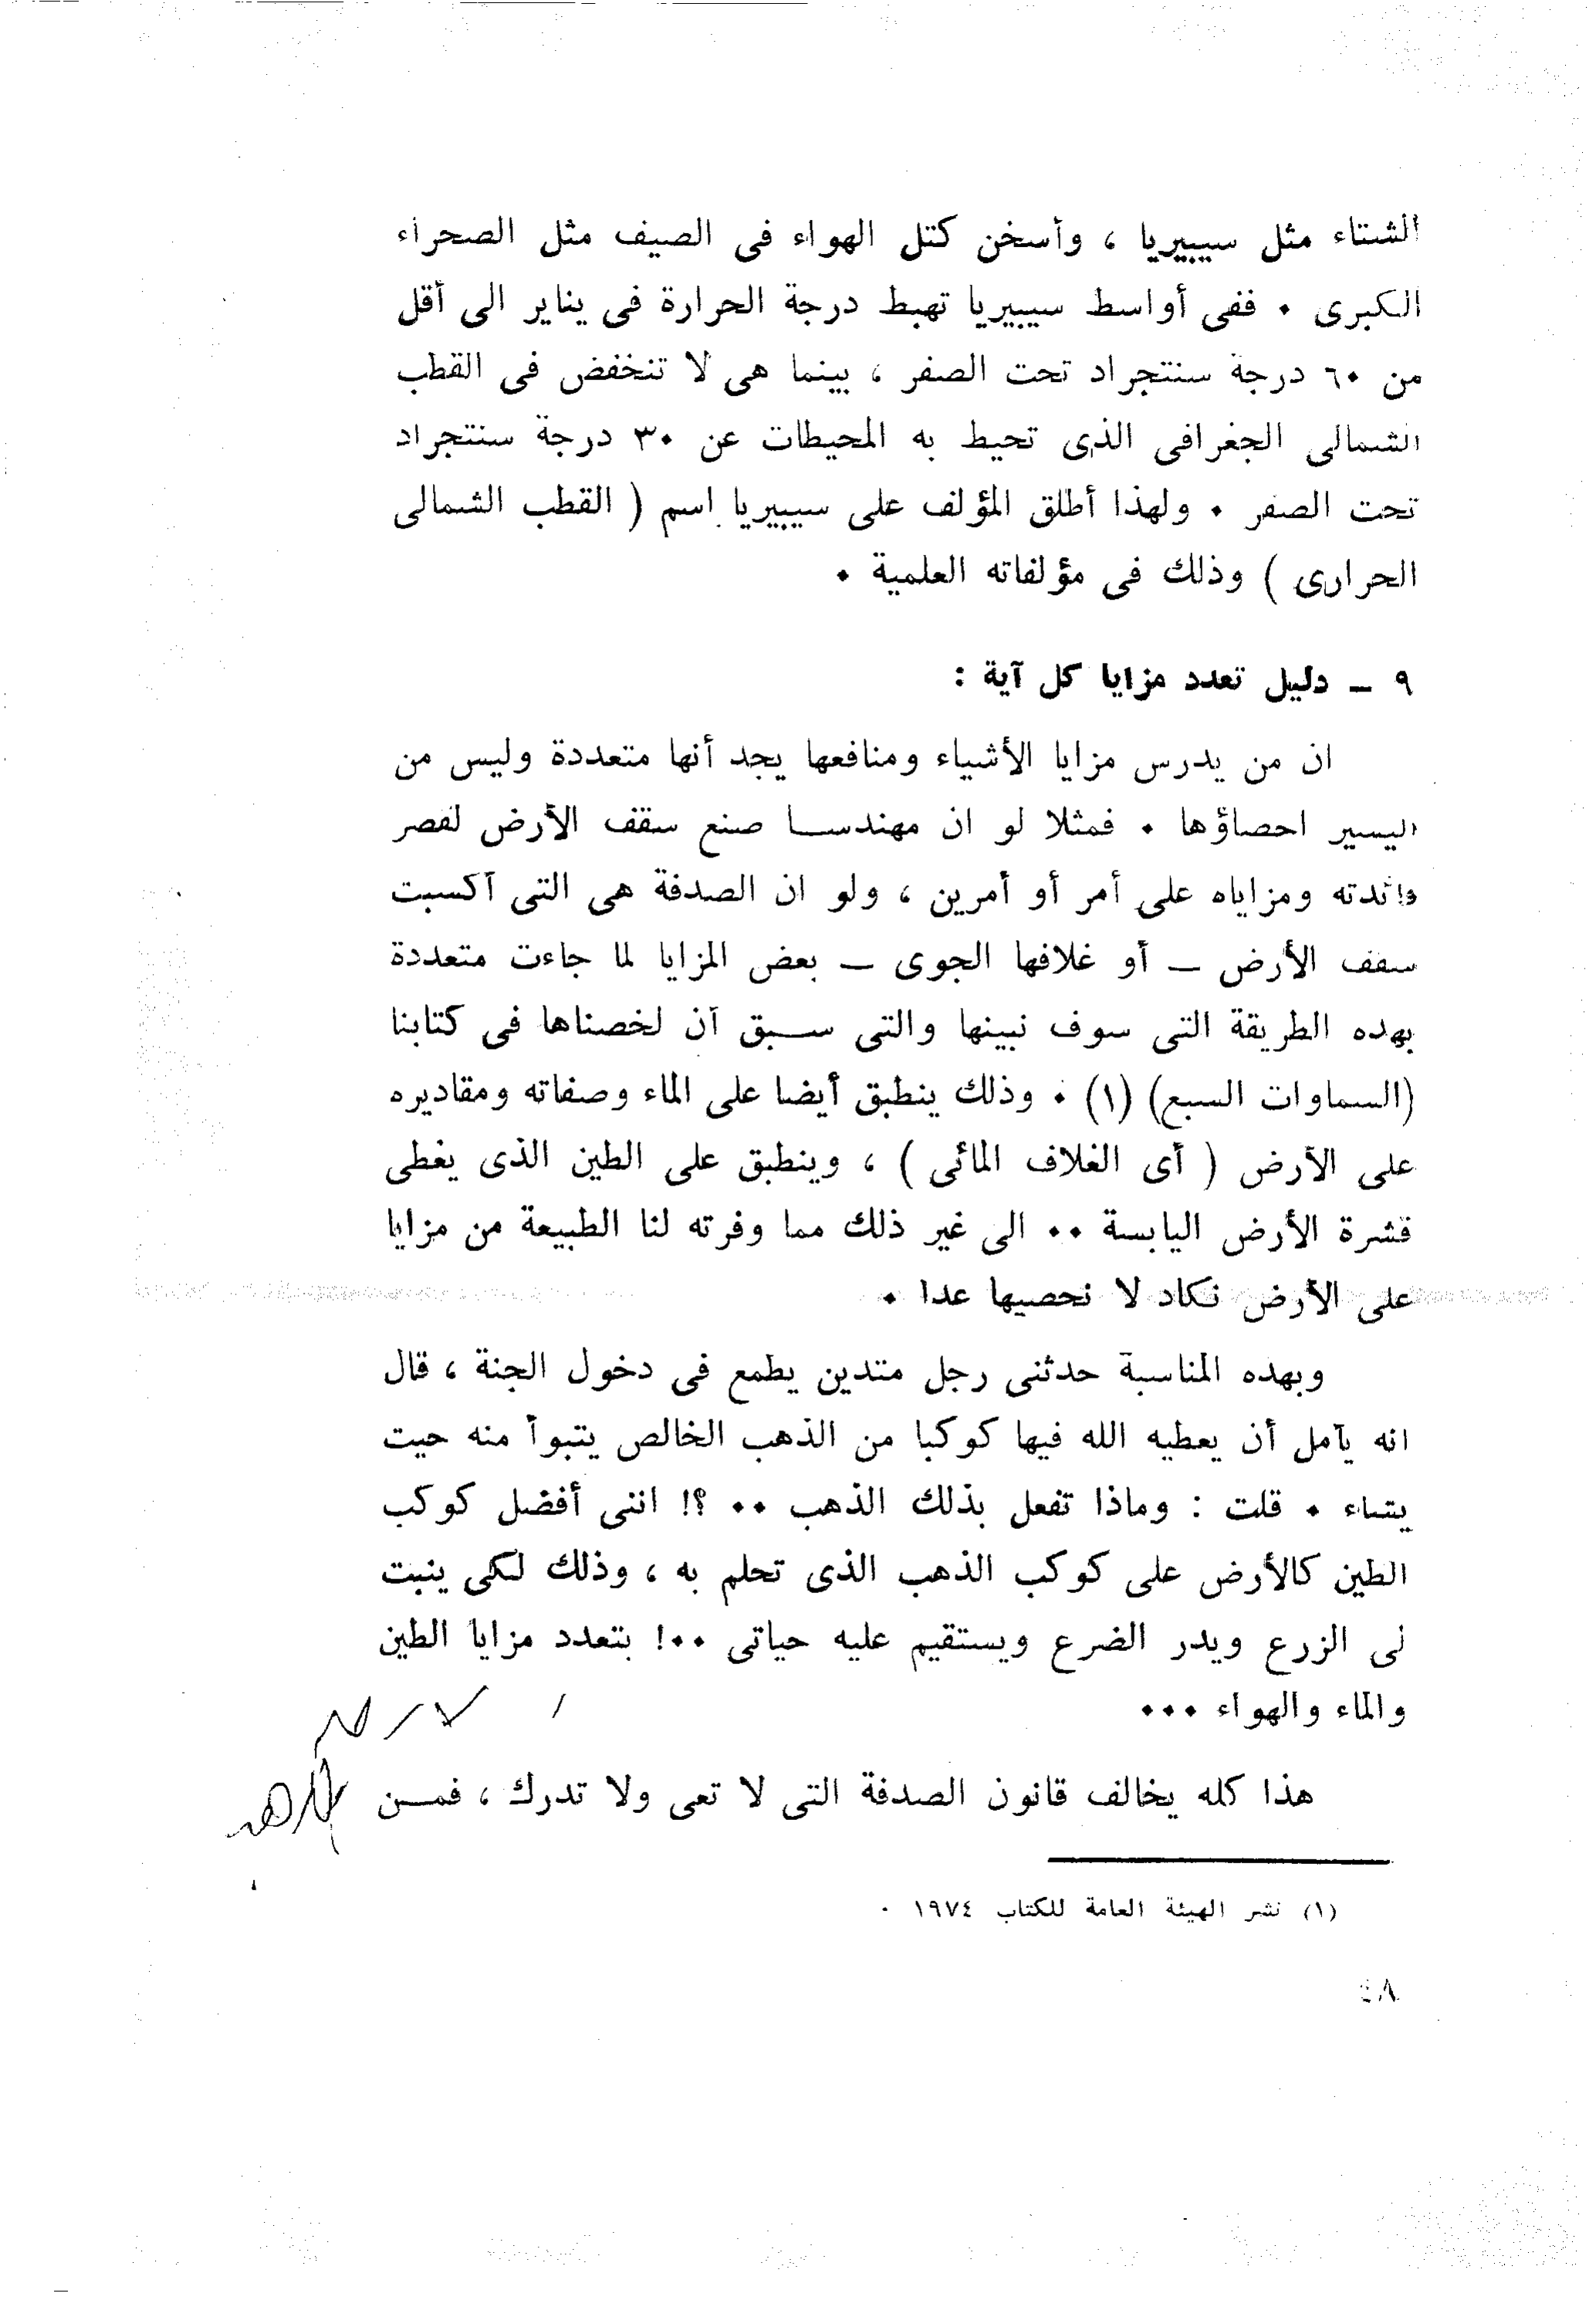 الشتاء مثل سيبيريا ، وأسخن كتل الهواء فى الصيف مثل الصحراء
الكبرى ٠ ففى أواسط سيبيريا تهبط درجة الحرارة فى يناير الى أقل
من ٦٠ درجة سنتجراد تحت الصفر ، بينما هى لا تنخفض فى القطب
الشمالى الجغرافى الذى تحيط به المحيطات عن ٣٠ درجة سنتجراد
تحت الصفر ٠ ولهذا أطلق المؤلف على سيبيريا اسم ( القطب الشمالى
الحرارى ) وذلك فى مؤلفاته العلمية ٠
٩ ـ دليل تعدد مزايا كل آية :
ان من يدرس مزايا الأشياء ومنافعها يجد أنها متعددة وليس من
اليسير احصاؤها ٠ فمثلا لو ان مهندسا صنع سقف الأرض لقصر
فائدته ومزاياه على أمر أو أمرين ، ولو ان الصدفة هى التى أكسبت
سقف الأرض ـ أو غلافها الجوى ـ بعض المزايا لما جاءت متعددة
بهذه الطريقة التى سوف نبينها والتى سبق أن لخصناها فى كتابنا
(السماوات السبع) (١) ٠ وذلك ينطبق أيضا على الماء وصفاته ومقاديره
على الأرض ( أى الغلاف المائى ) ، وينطبق على الطين الذى يغطى
قشرة الأرض اليابسة ٠٠ الى غير ذلك مما وفرته لنا الطبيعة من مزايا
على الأرض نكاد لا نحصيها عدا ٠
وبهذه المناسبة حدثنى رجل متدين يطمع فى دخول الجنة ، قال
انه يأمل أن يعطيه الله فيها كوكبا من الذهب الخالص يتبوأ منه حيث
يشاء ٠ قلت : وماذا تفعل بذلك الذهب ٠٠ ؟! اننى أفضل كوكب
الطين كالأرض على كوكب الذهب الذى تحلم به ، وذلك لكى ينبت
لى الزرع ويدر الضرع ويستقيم عليه حياتى ٠٠! بتعدد مزايا الطين
والماء والهواء ٠٠٠
هذا كله يخالف قانون الصدفة التى لا تعى ولا تدرك ، فمن
(١) نشر الهيئة العامة للكتاب ١٩٧٤ ٠
٤٨